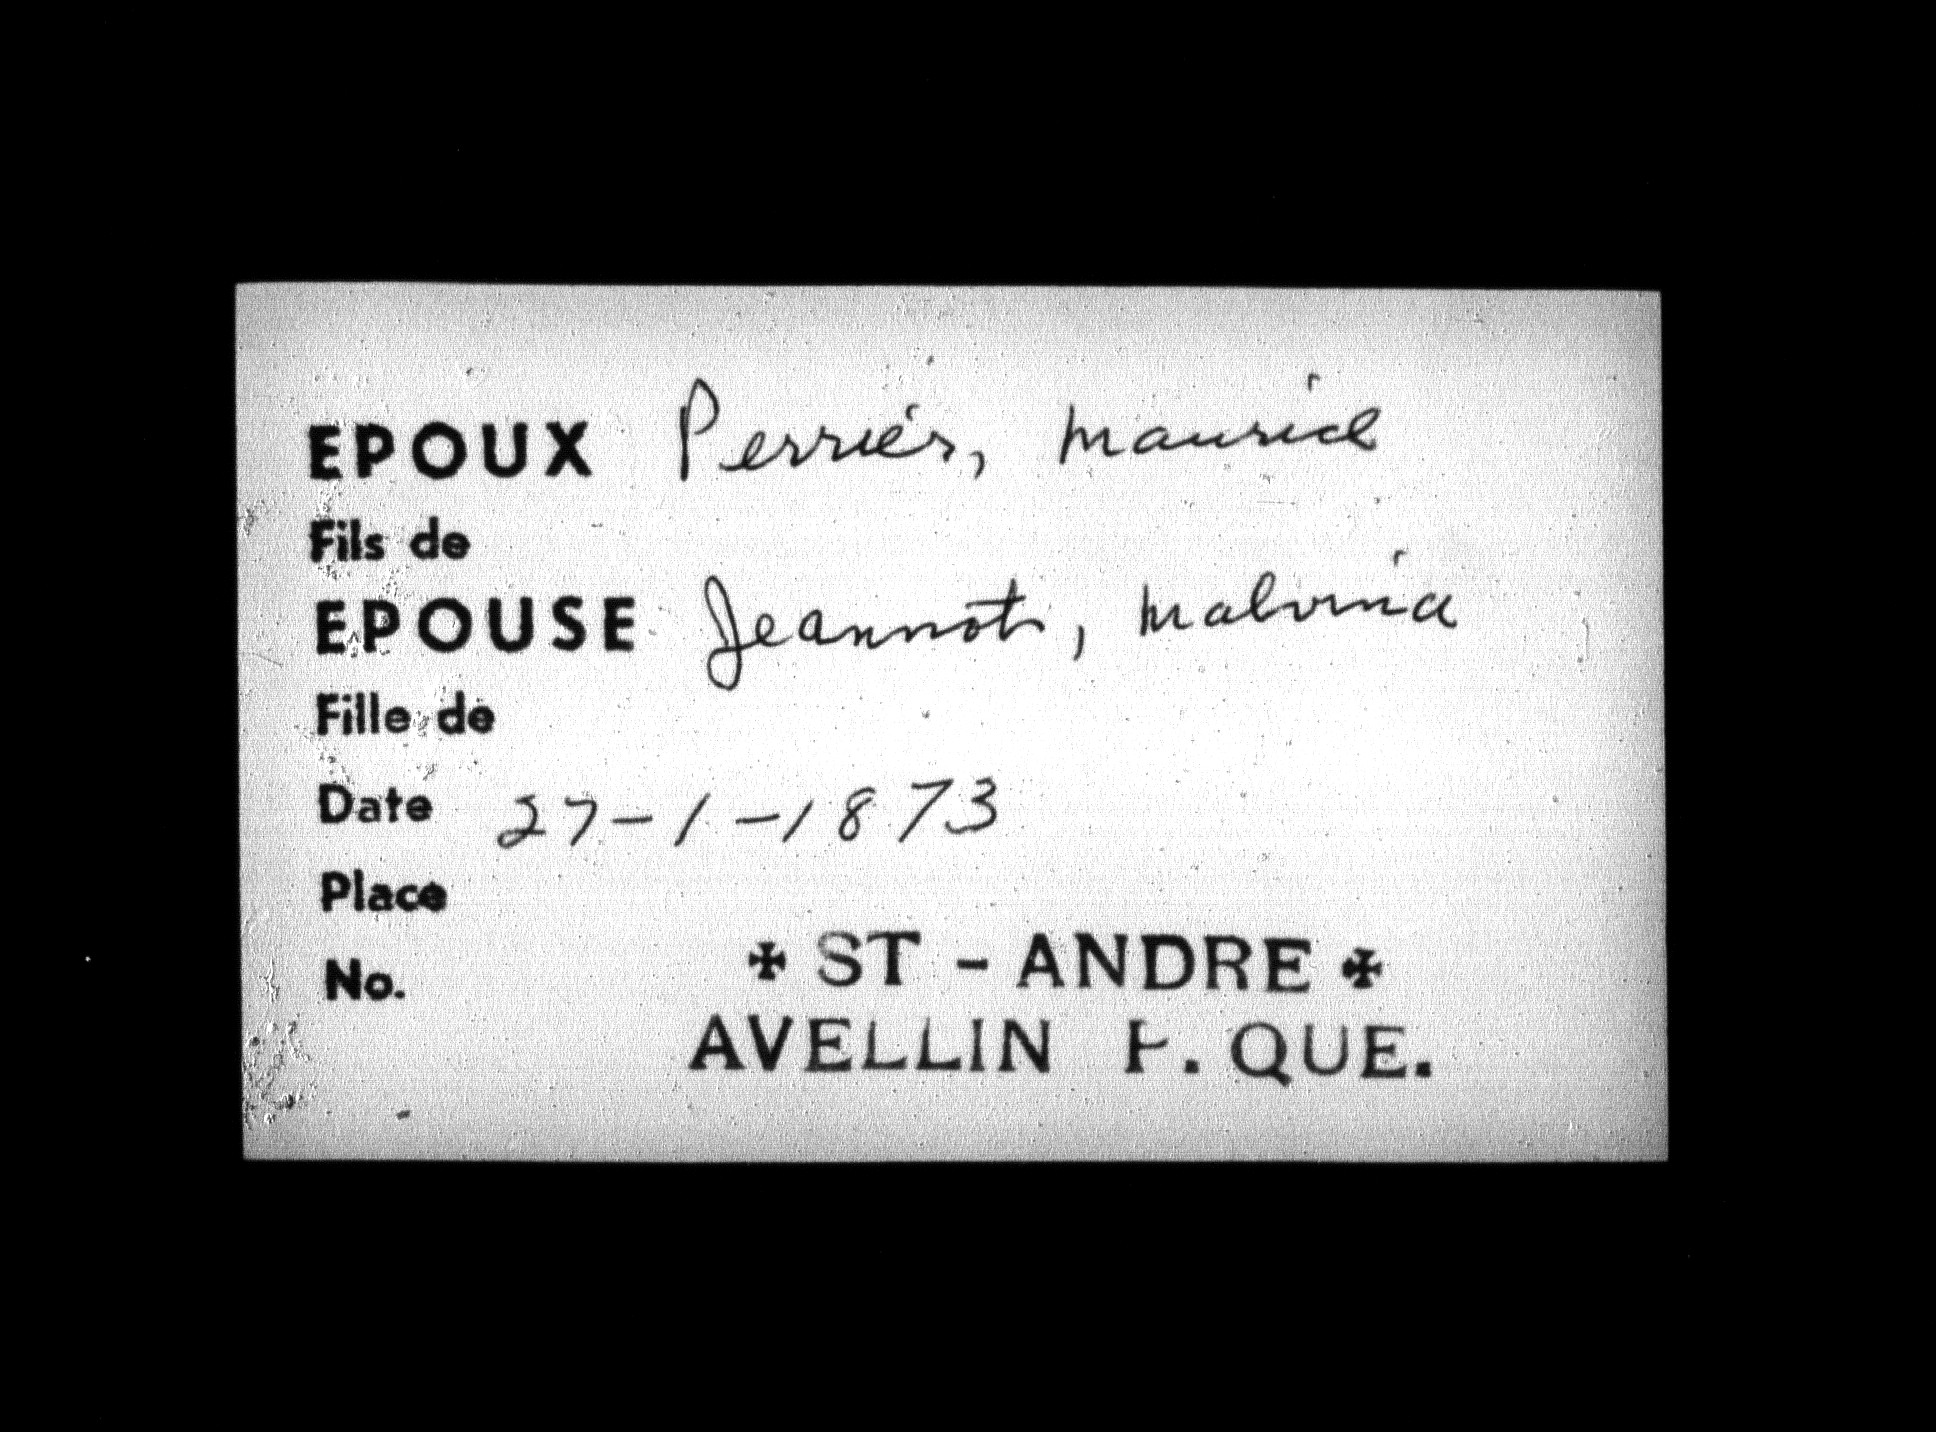 EPOUX Perrier, Maurice
Fils de
EPOUSE Jeannot, Malvina
Fille de
Date 27-1-1873
Place
No.
✠ ST - ANDRE ✠
AVELLIN P. QUE.